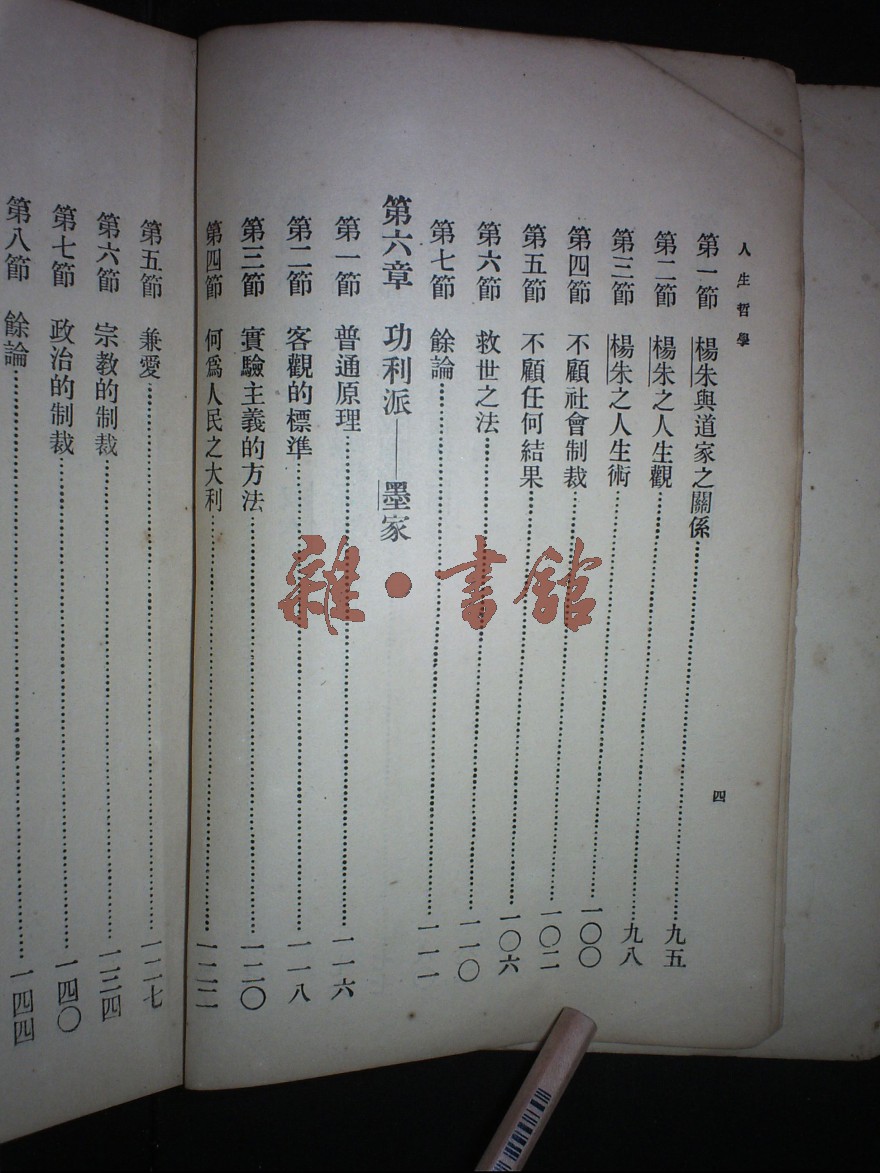 人生哲學
四
第一節 楊朱與道家之關係 九五
第二節 楊朱之人生觀 九八
第三節 楊朱之人生術 一〇〇
第四節 不顧社會制裁 一〇二
第五節 不顧任何結果 一〇六
第六節 救世之法 一一〇
第七節 餘論 一一一
第六章 功利派——墨家
第一節 普通原理 一一六
第二節 客觀的標準 一一八
第三節 實驗主義的方法 一二〇
第四節 何爲人民之大利 一二二
第五節 兼愛 一二七
第六節 宗教的制裁 一三四
第七節 政治的制裁 一四〇
第八節 餘論 一四四
雜·書館